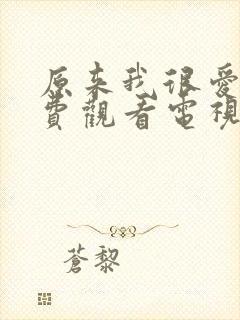 原来我很愛
費觀看電視
蒼黎